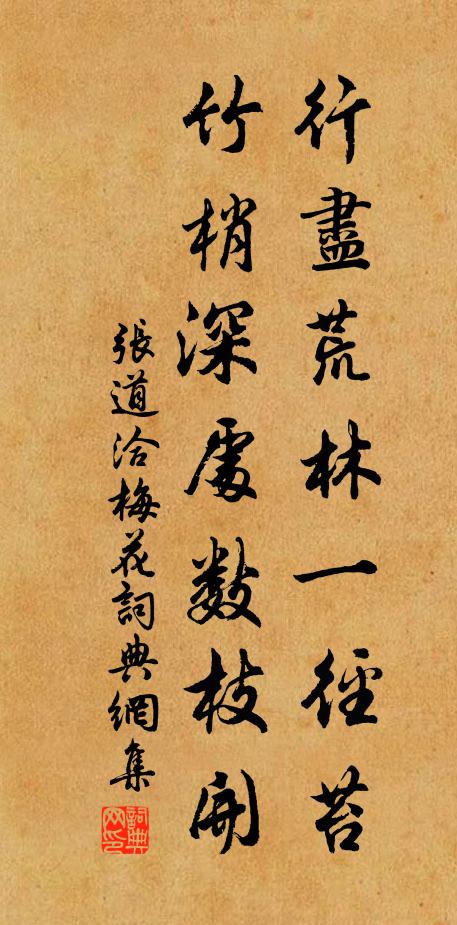 行盡荒林一徑苔
竹梢深處數枝開
張道洽梅花詞典網集
詞典网印